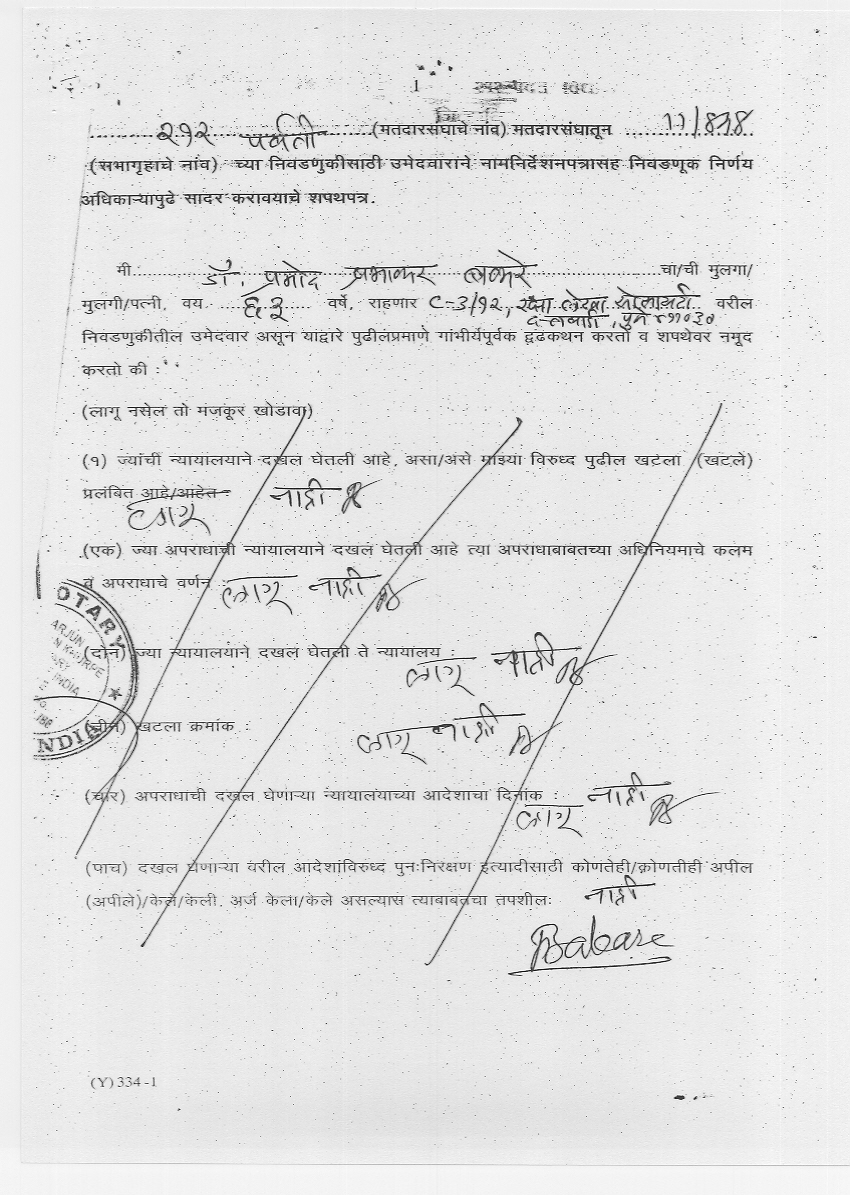 1
२१२ पर्वती (मतदारसंघाचे नांव) मतदारसंघातून
(सभागृहाचे नांव) च्या निवडणुकीसाठी उमेदवाराने नामनिर्देशनपत्रासह निवडणूक निर्णय
अधिकाऱ्यापुढे सादर करावयाचे शपथपत्र.
मी डॉ. प्रमोद प्रभाकर बकरे चा/ची मुलगा/
मुलगी/पत्नी, वय ६३ वर्षे, राहणार C-3/१२, रक्षा लेखा सोसायटी वरील
पुणे ४११०३०
निवडणुकीतील उमेदवार असून याद्वारे पुढीलप्रमाणे गांभीर्यपूर्वक दृढकथन करतो व शपथेवर नमूद
करतो की :
(लागू नसेल तो मजकूर खोडावा)
(१) ज्यांची न्यायालयाने दखल घेतली आहे, असा/असे माझ्या विरुध्द पुढील खटला (खटले)
प्रलंबित आहे/आहेत लागू नाही
(एक) ज्या अपराधाची न्यायालयाने दखल घेतली आहे त्या अपराधाबाबतच्या अधिनियमाचे कलम
व अपराधाचे वर्णन : लागू नाही
(दोन) ज्या न्यायालयाने दखल घेतली ते न्यायालय : लागू नाही
(तीन) खटला क्रमांक : लागू नाही
(चार) अपराधाची दखल घेणाऱ्या न्यायालयाच्या आदेशाचा दिनांक : लागू नाही
(पाच) दखल घेणाऱ्या वरील आदेशांविरुध्द पुनःनिरक्षण इत्यादीसाठी कोणतेही/कोणतीही अपील
(अपीले)/केले/केली, अर्ज केला/केले असल्यास त्याबाबतचा तपशील: नाही
Bakare
NOTARY
ARJUN
INDIA
INDIA
(Y) 334 -1